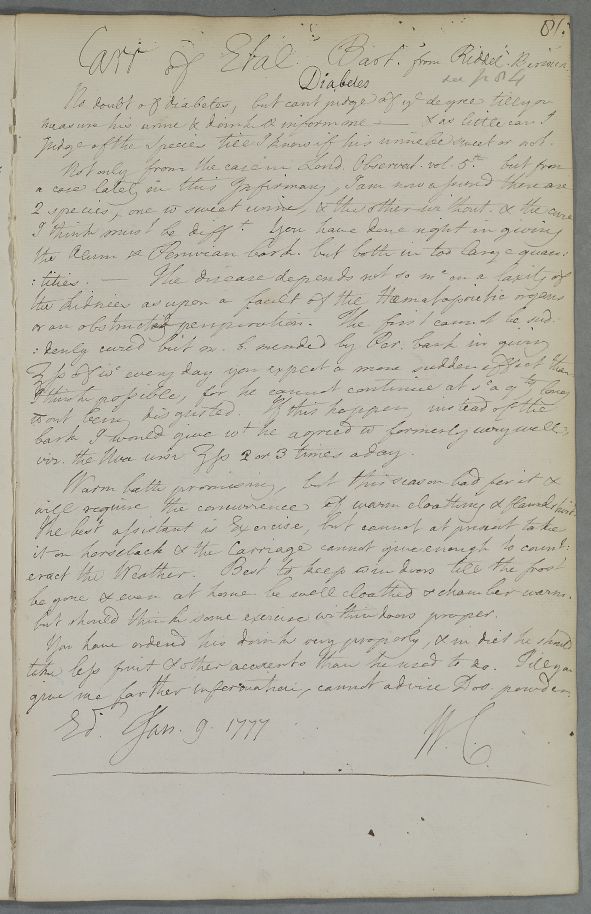 81.
Carr of Etal. Bart. from Riddel. Berwick.
Diabetes
see p 84
No doubt of diabetes, but cant judge of ye degree till you
measure his urine & drink & inform me — & as little can I
judge of the Species till I know if his urine be sweet or not.
Not only from the case in Lond. Observat. vol. 5th but from
a case lately in this Infirmary, I am now assured there are
2 species, one wt sweet urine, & the other without. & the cure
I think must be difft. You have done right in giving
the Alum & Peruvian bark. but both in too large quan:
:tities. — The disease depends not so mh on a laxity of
the kidnies as upon a fault of the Haematopoietic organs
or an obstructed perspiration. The first cannot be sud
:denly cured but m. b. mended by Per. bark in giving
℥ss of it every day you expect a more sudden effect than
I think possible, for he cannot continue at s a qty long
wtout being disgusted. If this happen, instead of the
bark I would give wt he agreed wt formerly very well,
viz. the Uva ursi ʒss 2 or 3 times a day.
Warm bath promising, but this season bad for it &
will require the concurrence of warm cloathing & flannel shirt
The best assistant is Exercise, but cannot at present take
it on horseback & the Carriage cannot give enough to count:
eract the Weather. Best to keep within doors till the frost
be gone & even at home be well cloathed & chamber warm.
but should think some exercise within doors proper.
You have ordered his drink very properly, & in diet he should
take less fruit & other acescents than he used to do. Till you
give me farther information, cannot advise Dos. powder.
Edr. Jan. 9. 1777 W.C.